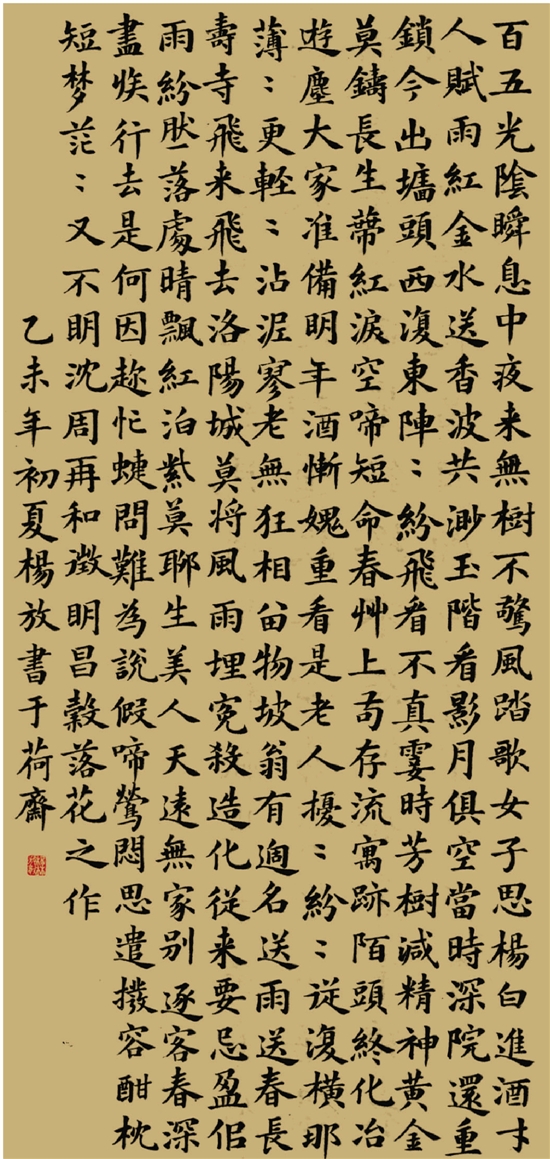 百五光陰瞬息中夜来無樹不驚風踏歌女子思楊白進酒才
人賦雨紅金水送香波共渺玉階看影月俱空當時深院還重
鎖今出墻頭西復東陣：紛飛看不真霎時芳樹減精神黄金
莫鑄長生蔕紅淚空啼短命春艸上苟存流寓跡陌頭終化冶
遊塵大家准備明年酒慚媿重看是老人擾：紛：從復橫那
薄：更輕：沾泥寥老無狂相留物坡翁有過名送雨送春長
壽寺飛来飛去洛陽城莫將風雨埋冤殺造化從来要忌盈佀
雨紛然落處晴飄紅泊紫莫聊生美人天遠無家别逐客春深
盡族行去是何因趂忙蜨問難為説假啼鶯悶思遣撥容酣枕
短梦茫：又不明沈周再和徵明昌穀落花之作
乙未年初夏楊放書于荷齋